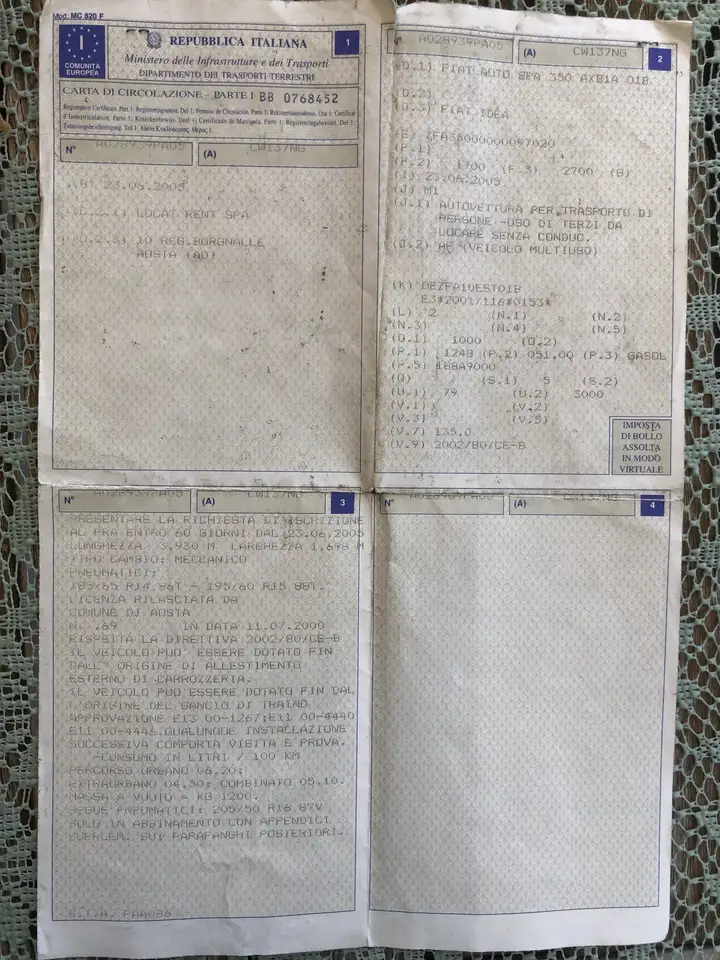 Mod. MC 820 F
I
COMUNITÀ
EUROPEA
REPUBBLICA ITALIANA
1
Ministero delle Infrastrutture e dei Trasporti
DIPARTIMENTO DEI TRASPORTI TERRESTRI
CARTA DI CIRCOLAZIONE - PARTE I BB 0768452
N° A028939PA05 (A) CW137NG
(B) 23.06.2005
(C.2.1) LOCAT RENT SPA
(C.2.3) 10 REG.BORGNALLE
AOSTA (AO)
A028939PA05 (A) CW137NG
2
(D.1) FIAT AUTO SPA 350 AXB1A 01B
(D.2)
(D.3) FIAT IDEA
(E) ZFA35000000097020
(F.1)
(F.2) 1700 (F.3) 2700 (G)
(I) 23.06.2005
(J) M1
(J.1) AUTOVETTURA PER TRASPORTO DI
PERSONE -USO DI TERZI DA
LOCARE SENZA CONDUC.
(J.2) AF (VEICOLO MULTIUSO)
(K) OEZFA10EST01B
E3*2001/116*0153*
(L) 2 (N.1) (N.2)
(N.3) (N.4) (N.5)
(O.1) 1000 (O.2)
(P.1) 1248 (P.2) 051,00 (P.3) GASOL
(P.5) 188A9000
(Q) (S.1) 5 (S.2)
(U.1) 79 (U.2) 3000
(V.1) (V.2)
(V.3) (V.5)
(V.7) 135.0
(V.9) 2002/80/CE-B
IMPOSTA
DI BOLLO
ASSOLTA
IN MODO
VIRTUALE
N° A028939PA05 (A) CW137NG
3
PRESENTARE LA RICHIESTA DI ISCRIZIONE
AL PRA ENTRO 60 GIORNI DAL 23.06.2005
LUNGHEZZA 3,930 M LARGHEZZA 1,698 M
TIPO CAMBIO: MECCANICO
PNEUMATICI:
185/65 R14 86T - 195/60 R15 88T.
LICENZA RILASCIATA DA
COMUNE DI AOSTA
N. .69 IN DATA 11.07.2000
RISPETTA LA DIRETTIVA 2002/80/CE-B
IL VEICOLO PUO' ESSERE DOTATO FIN
DALL' ORIGINE DI ALLESTIMENTO
ESTERNO DI CARROZZERIA.
IL VEICOLO PUO'ESSERE DOTATO FIN DAL
L'ORIGINE DEL GANCIO DI TRAINO
APPROVAZIONE E13 00-1267;E11 00-4440
E11 00-4446.QUALUNQUE INSTALLAZIONE
SUCCESSIVA COMPORTA VISITA E PROVA.
-CONSUMO IN LITRI / 100 KM
PERCORSO URBANO 06,20;
EXTRAURBANO 04,50; COMBINATO 05,10.
MASSA A VUOTO = KG 1200.
SEGUE PNEUMATICI: 205/50 R16 87V
SOLO IN ABBINAMENTO CON APPENDICI
SUPPLEM. SUI PARAFANGHI POSTERIORI.
S.T.A. PAA086
N° A028939PA05 (A) CW137NG
4